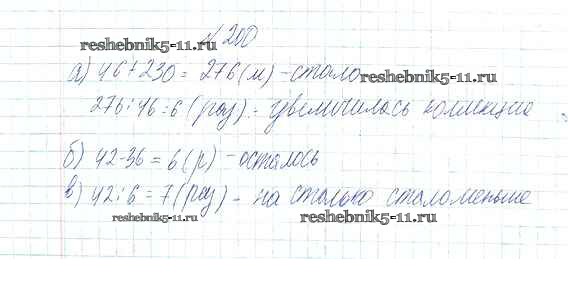 № 200
reshebnik5-11.ru
а) 46+230 = 276(м) - стало
reshebnik5-11.ru
276:46=6 (раз) - увеличилась коллекция
б) 42-36 = 6(р) - осталось
в) 42:6 = 7(раз) - на столько стало меньше
reshebnik5-11.ru
reshebnik5-11.ru